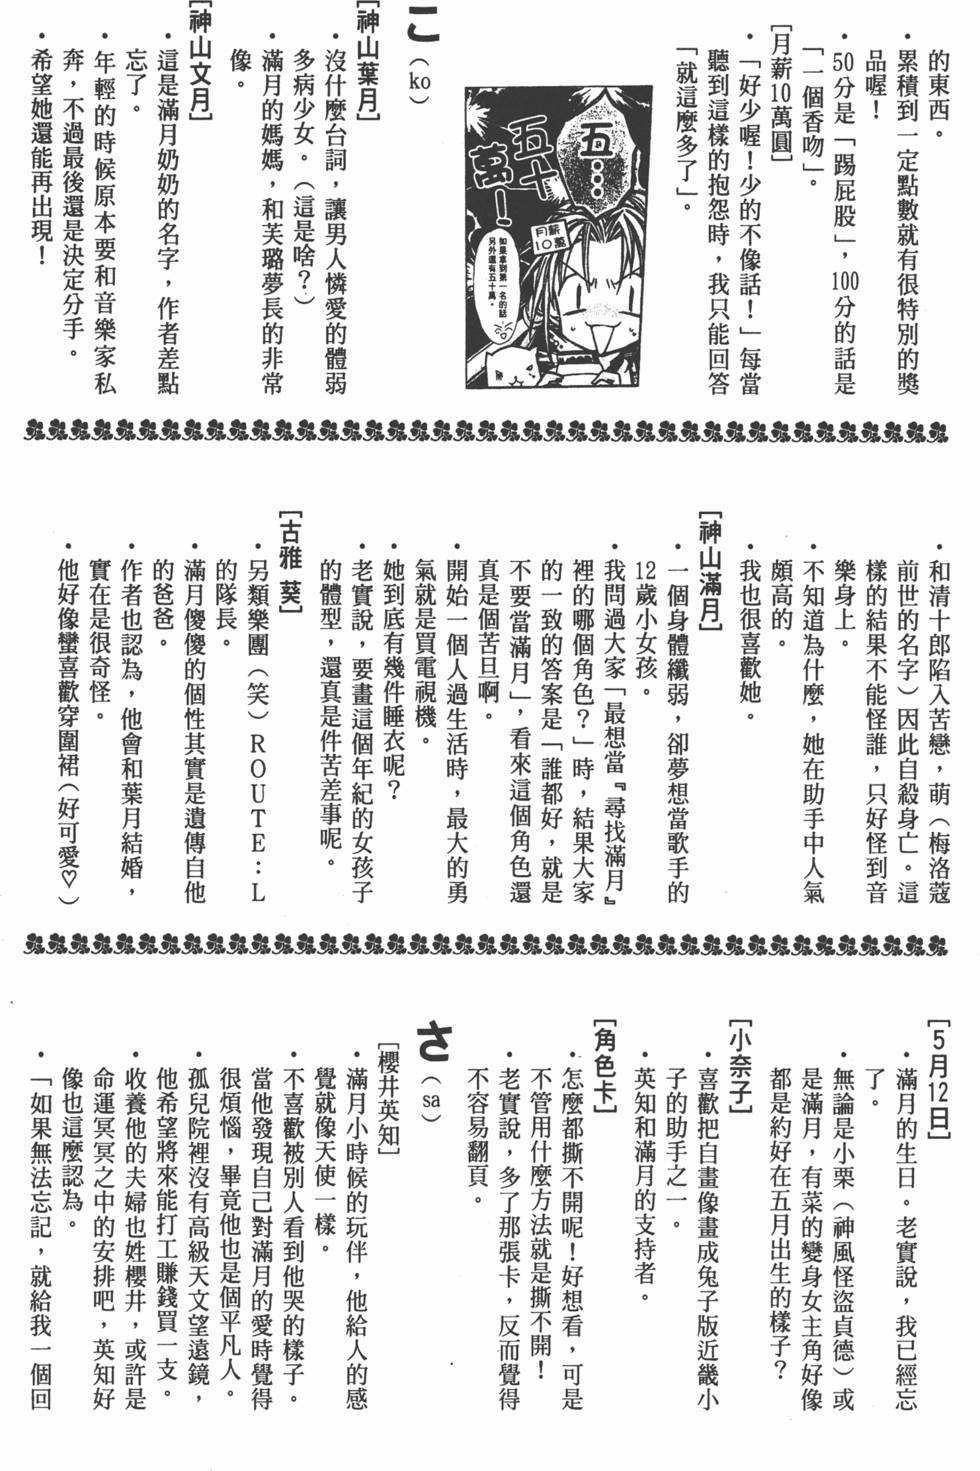 的東西。
・累積到一定點數就有很特別的獎
品喔！
・50分是「踢屁股」，100分的話是
「一個香吻」。
[月薪10萬圓]
・「好少喔！少的不像話！」每當
聽到這樣的抱怨時，我只能回答
「就這麼多了」。
五…
五十
萬！
月薪
10萬
如果拿到第一名的話
另外還有五十萬。
こ（ko）
[神山葉月]
・沒什麼台詞，讓男人憐愛的體弱
多病少女。（這是啥？）
・滿月的媽媽，和芙璐夢長的非常
像。
[神山文月]
・這是滿月奶奶的名字，作者差點
忘了。
・年輕的時候原本要和音樂家私
奔，不過最後還是決定分手。
・希望她還能再出現！
・和清十郎陷入苦戀，萌（梅洛蔻
前世的名字）因此自殺身亡。這
樣的結果不能怪誰，只好怪到音
樂身上。
・不知道為什麼，她在助手中人氣
頗高的。
・我也很喜歡她。
[神山滿月]
・一個身體纖弱，卻夢想當歌手的
12歲小女孩。
・我問過大家「最想當『尋找滿月』
裡的哪個角色？」時，結果大家
的一致的答案是「誰都好，就是
不要當滿月」，看來這個角色還
真是個苦旦啊。
・開始一個人過生活時，最大的勇
氣就是買電視機。
・她到底有幾件睡衣呢？
・老實說，要畫這個年紀的女孩子
的體型，還真是件苦差事呢。
[古雅 葵]
・另類樂團（笑）ROUTE：L
的隊長。
・滿月傻傻的個性其實是遺傳自他
的爸爸。
・作者也認為，他會和葉月結婚，
實在是很奇怪。
・他好像蠻喜歡穿圍裙（好可愛♡）
[5月12日]
・滿月的生日。老實說，我已經忘
了。
・無論是小栗（神風怪盜貞德）或
是滿月，有菜的變身女主角好像
都是約好在五月出生的樣子？
[小奈子]
・喜歡把自畫像畫成兔子版近畿小
子的助手之一。
・英知和滿月的支持者。
[角色卡]
・怎麼都撕不開呢！好想看，可是
不管用什麼方法就是撕不開！
・老實說，多了那張卡，反而覺得
不容易翻頁。
さ（sa）
[櫻井英知]
・滿月小時候的玩伴，他給人的感
覺就像天使一樣。
・不喜歡被別人看到他哭的樣子。
・當他發現自己對滿月的愛時覺得
很煩惱，畢竟他也是個平凡人。
・孤兒院裡沒有高級天文望遠鏡，
他希望將來能打工賺錢買一支。
・收養他的夫婦也姓櫻井，或許是
命運冥冥之中的安排吧，英知好
像也這麼認為。
・「如果無法忘記，就給我一個回